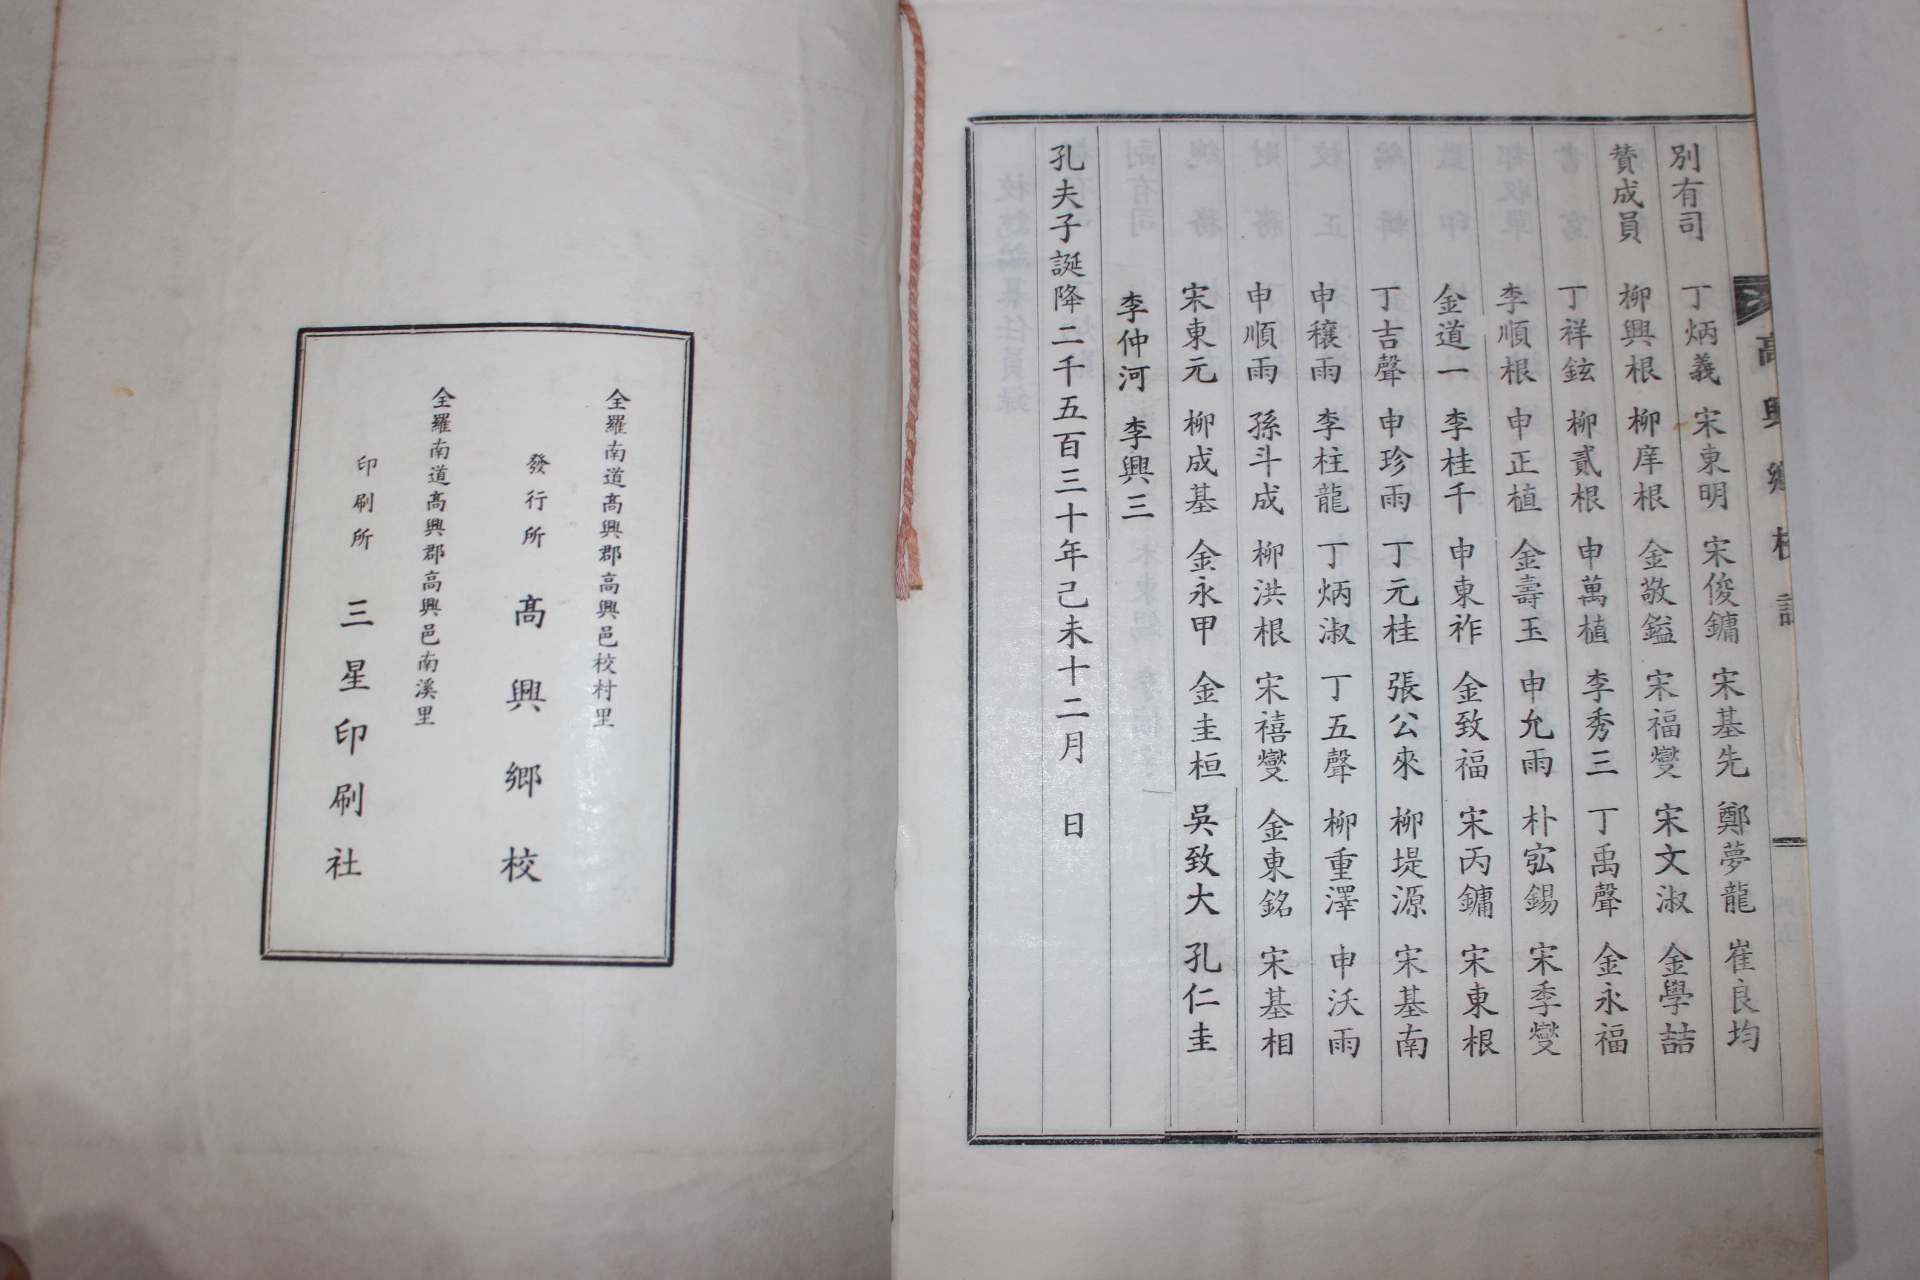 高興鄉校誌
別有司 丁炳義 宋東明 宋俊鏞 宋基先 鄭夢龍 崔良均
贊成員 柳興根 柳庠根 金敬鎰 宋福燮 宋文淑 金學喆
丁祥鉉 柳貳根 申萬植 李秀三 丁禹聲 金永福
李順根 申正植 金壽玉 申允雨 朴宖錫 宋季燮
金道一 李桂千 申東祚 金致福 宋丙鏞 宋東根
丁吉聲 申珍雨 丁元桂 張公來 柳堤源 宋基南
申穰雨 李柱龍 丁炳淑 丁五聲 柳重澤 申沃雨
申順雨 孫斗成 柳洪根 宋禧燮 金東銘 宋基相
宋東元 柳成基 金永甲 金圭桓 吳致大 孔仁圭
李仲河 李興三
孔夫子誕降二千五百三十年己未十二月 日
全羅南道高興郡高興邑校村里
發行所 高興鄉校
全羅南道高興郡高興邑南溪里
印刷所 三星印刷社